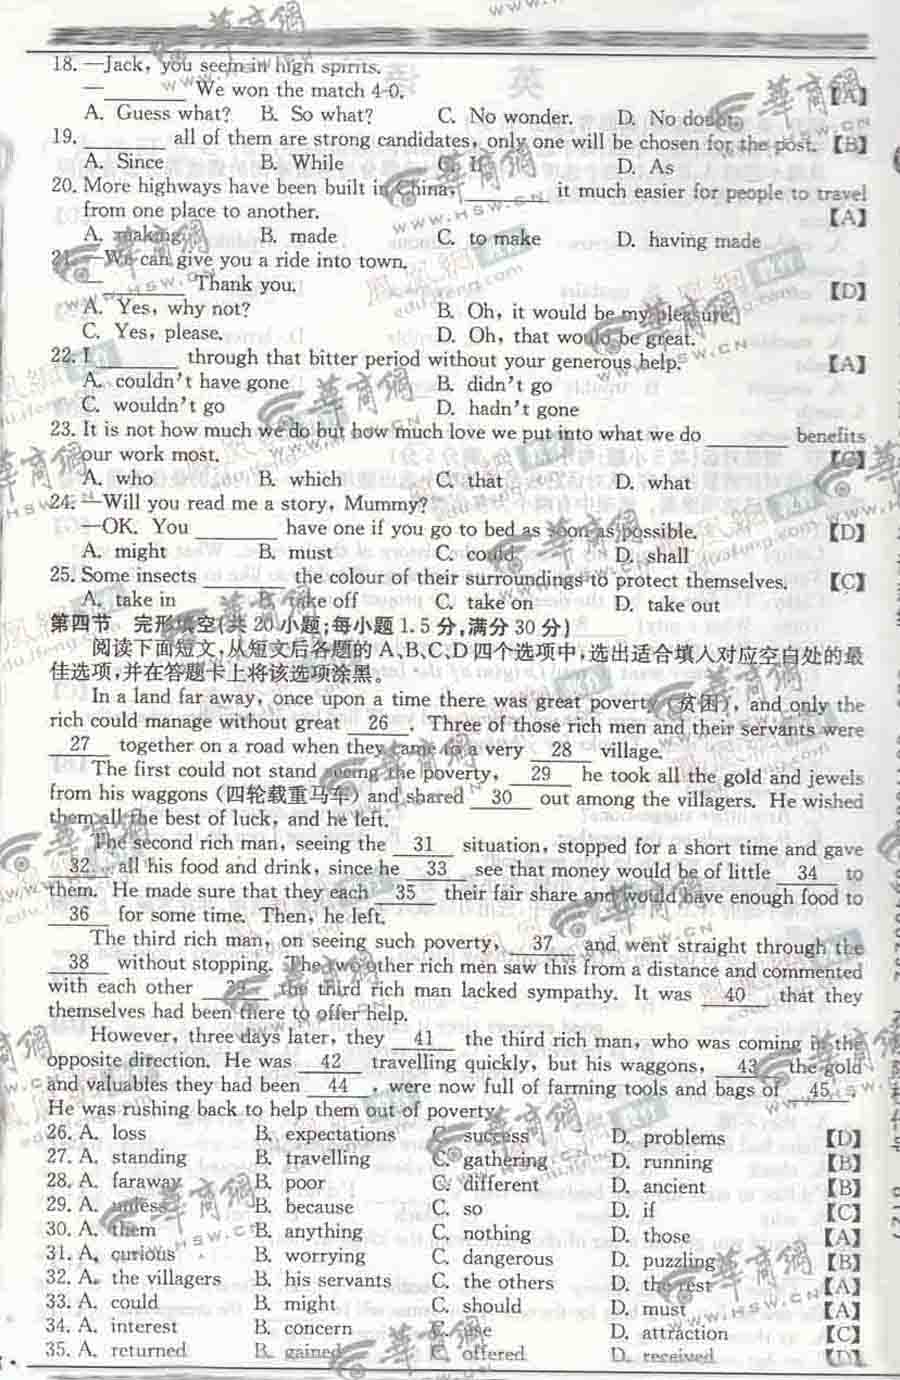 18. —Jack, you seem in high spirits.
—________ We won the match 4-0. 【A】
A. Guess what? B. So what? C. No wonder. D. No doubt.
19. ________ all of them are strong candidates, only one will be chosen for the post. 【B】
A. Since B. While C. If D. As
20. More highways have been built in China, ________ it much easier for people to travel
from one place to another. 【A】
A. making B. made C. to make D. having made
21. —We can give you a ride into town.
—________ Thank you. 【D】
A. Yes, why not? B. Oh, it would be my pleasure.
C. Yes, please. D. Oh, that would be great.
22. I ________ through that bitter period without your generous help. 【A】
A. couldn't have gone B. didn't go
C. wouldn't go D. hadn't gone
23. It is not how much we do but how much love we put into what we do ________ benefits
our work most. 【C】
A. who B. which C. that D. what
24. —Will you read me a story, Mummy?
—OK. You ________ have one if you go to bed as soon as possible. 【D】
A. might B. must C. could D. shall
25. Some insects ________ the colour of their surroundings to protect themselves. 【C】
A. take in B. take off C. take on D. take out
第四节 完形填空(共 20 小题;每小题 1.5 分,满分 30 分)
阅读下面短文,从短文后各题的 A、B、C、D 四个选项中,选出适合填入对应空白处的最
佳选项,并在答题卡上将该选项涂黑。
In a land far away, once upon a time there was great poverty (贫困), and only the
rich could manage without great 26 . Three of those rich men and their servants were
27 together on a road when they came to a very 28 village.
The first could not stand seeing the poverty, 29 he took all the gold and jewels
from his waggons (四轮载重马车) and shared 30 out among the villagers. He wished
them all the best of luck, and he left.
The second rich man, seeing the 31 situation, stopped for a short time and gave
32 all his food and drink, since he 33 see that money would be of little 34 to
them. He made sure that they each 35 their fair share and would have enough food to
36 for some time. Then, he left.
The third rich man, on seeing such poverty, 37 and went straight through the
38 without stopping. The two other rich men saw this from a distance and commented
with each other 39 the third rich man lacked sympathy. It was 40 that they
themselves had been there to offer help.
However, three days later, they 41 the third rich man, who was coming in the
opposite direction. He was 42 travelling quickly, but his waggons, 43 the gold
and valuables they had been 44 , were now full of farming tools and bags of 45 .
He was rushing back to help them out of poverty.
26. A. loss B. expectations C. success D. problems 【D】
27. A. standing B. travelling C. gathering D. running 【B】
28. A. faraway B. poor C. different D. ancient 【B】
29. A. unless B. because C. so D. if 【C】
30. A. them B. anything C. nothing D. those 【A】
31. A. curious B. worrying C. dangerous D. puzzling 【B】
32. A. the villagers B. his servants C. the others D. the rest 【A】
33. A. could B. might C. should D. must 【A】
34. A. interest B. concern C. use D. attraction 【C】
35. A. returned B. gained C. offered D. received 【D】